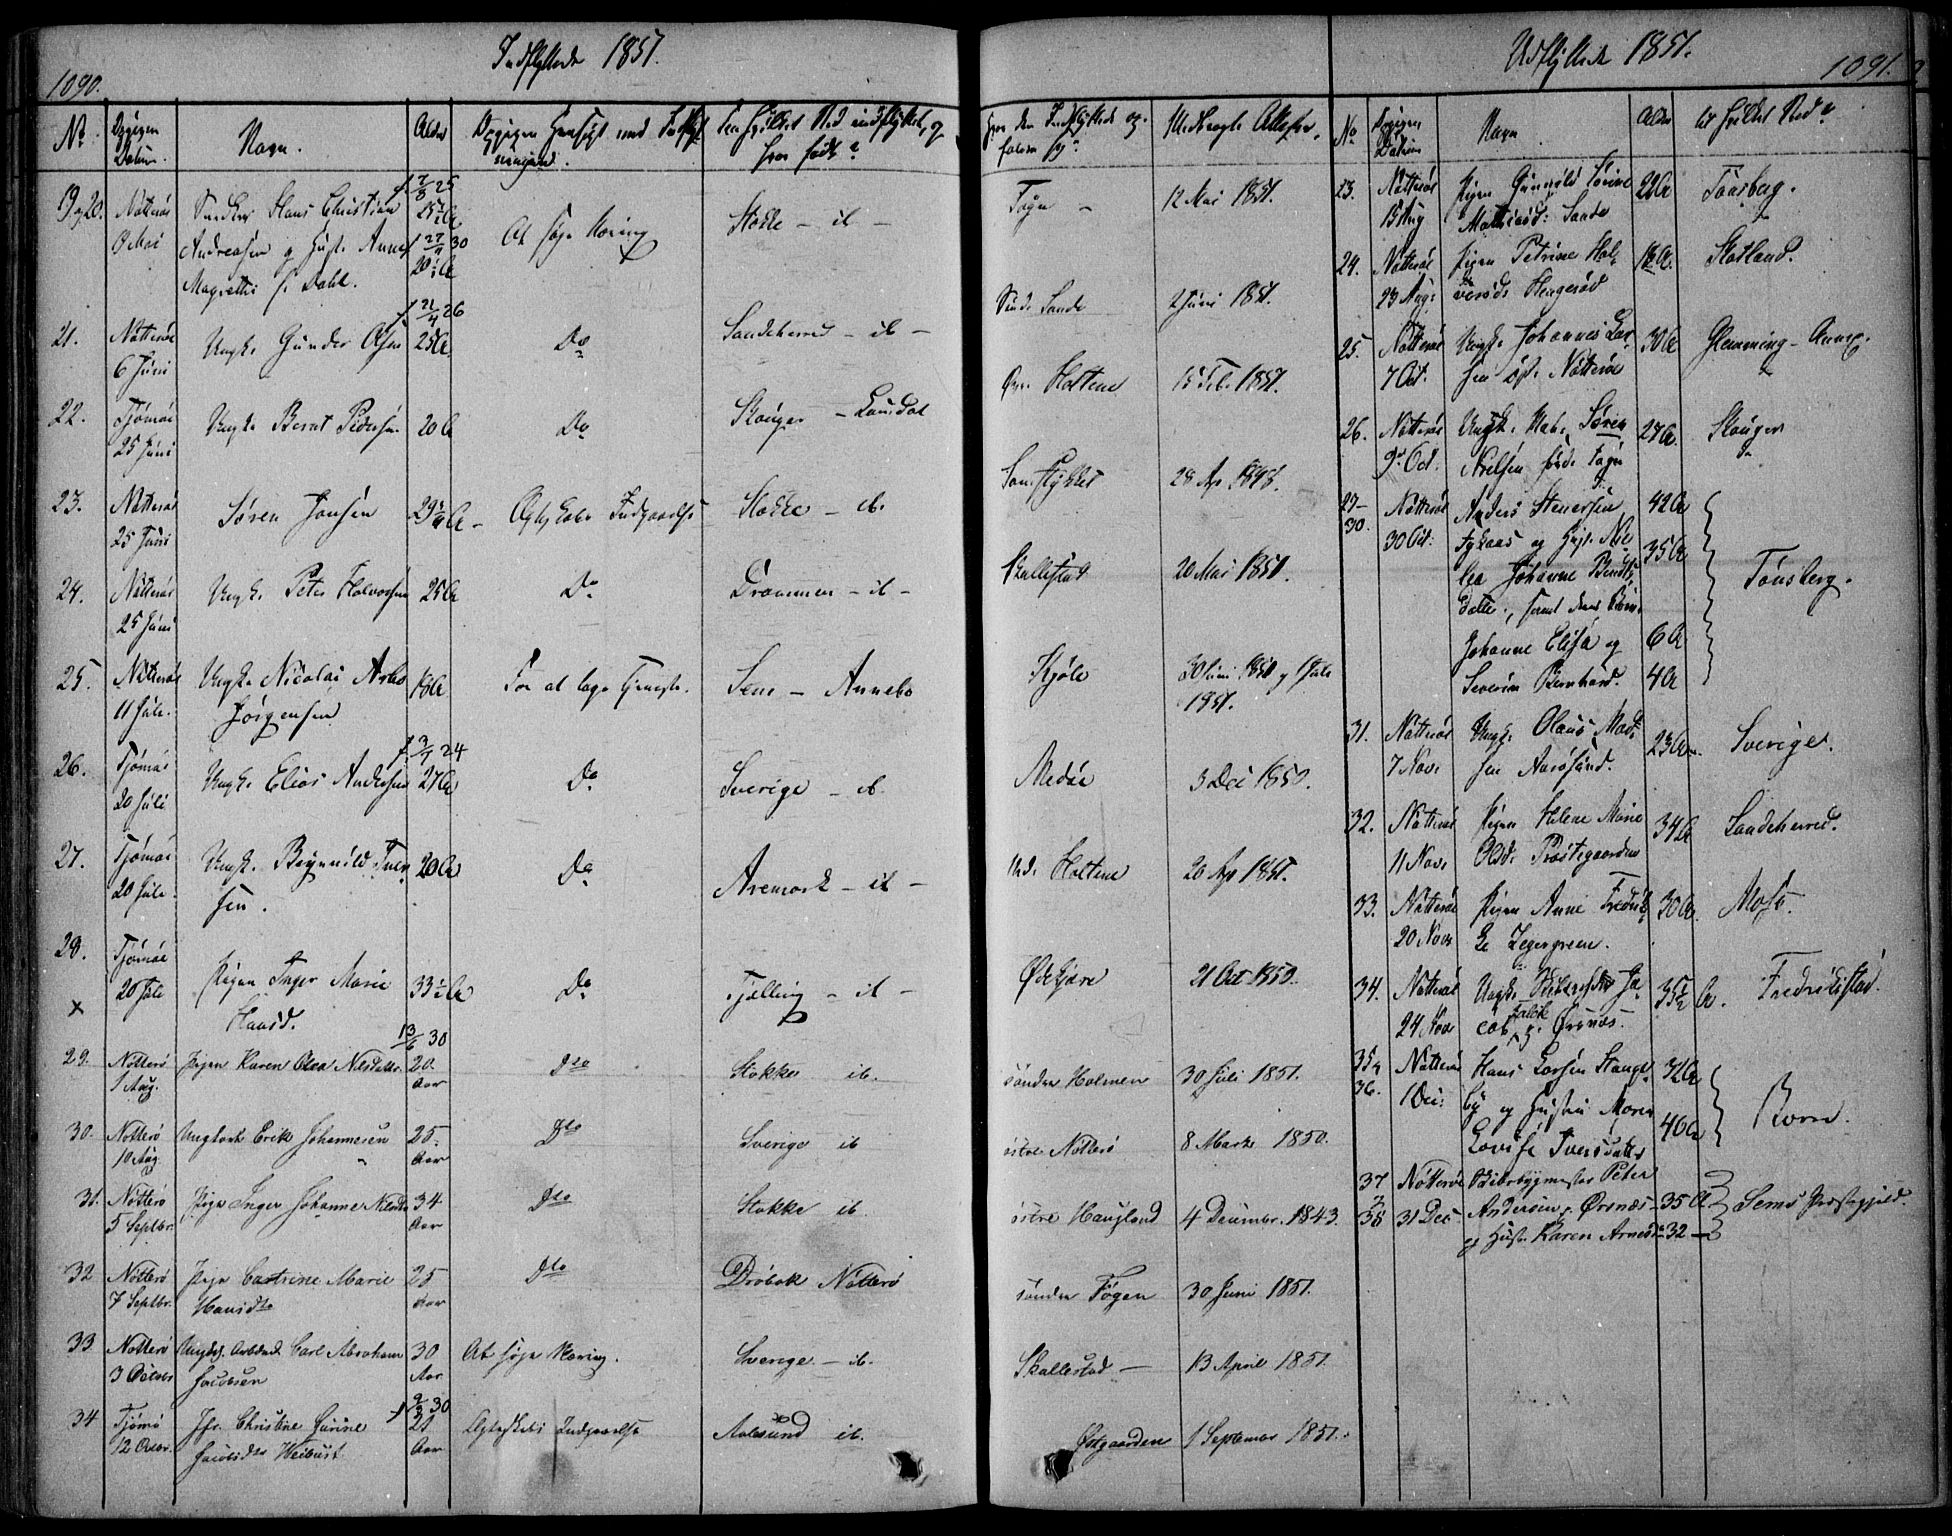 1090.
Indflyttede 1851.
No
Opgiven Datum.
Navn.
Alder
Opgiven Hensigt med Indflyt
Fra hvilket Sted indflyttet, og
hvor født?
hvor den Indflyttede op-
holder sig?
Medbragte Attester.
19 og 20.
Nøtterøe
9 Mai
Snedker Hans Christian
Andreasen og Hust. Anne
Magrethe f. Dahl.
f. 7/8 25
25 3/4 A
f 27/9 30
20 1/2 A
At søge Næring
Stokke - ib -
Fogn -
12 Mai 1851.
21.
Nøtterøe
6 Juni
Ungk. Gunder Olsen
f 21/4 26
25 A.
Do
Sandeherred - ib -
Sønd. Sande
2 Juni 1851.
22.
Tjømøe
25 Juni
Ungk. Bernt Pedersen
20 A
Do
Skouger -
Øvr. Holtene
15 Feb. 1851.
23.
Nøtterøe
25 Juni
Søren Jensen
Ægteskabs Indgaaelse
Stokke - ib.
24.
Nøtterøe
25 Juni
Ungk. Peter Halvorsen
25 A
Do
Drammen - ib -
Skallestad
20 Mai 1851.
25.
Nøtterøe
11 Juli.
Ungk. Nicolai Arbo
Jørgensen
18 A
For at tage Tjeneste.
Sem - Annebo
Kjøle
30 Juni 1850 og 1 Juli
1851.
26.
Tjømøe
20 Juli
Ungk. Elias Andersen
f 3/7 24
27 A
Do
Sverige - ib.
Medøe
3 Dec 1850.
27.
Tjømøe
20 Juli.
Ungk. Iver
sen.
20 A
Do
Aremark - ib -
Ned. Holtene
26 Ap 1851.
28.
x
Tjømøe
20 Juli
Pigen Inger Marie
Hansd.
33 1/2 A
Do
Tjølling - ib -
Ødekjære
21 Oct 1850.
29.
Nøtterø
1 Aug.
Pigen Karen Olea Nilsdatter
13/6 30
20.
Aar
Dto
Stokke ib.
søndre Holmen
30 Juli 1851.
30.
Nøtterø
10 Aug.
Ungkarl Erik Johannesen
25.
Aar
Dto
Sverige ib
østre Nøtterø
8 Marts 1850.
31.
Nøtterø
5 Septbr.
Pige Inger Johanne Nilsdtr
34
Aar
Dto
Stokke ib.
østre Haugland
4 Decembr. 1843.
32
Nøtterø
7 Septbr.
Pige Cathrine Marie
Hansdtr
25
Aar
Dto
Drøbak Nøtterø
søndre Fögen
30 Juni 1851.
33
Nøtterø
3 Octobr
Ungk. Arbeidsk Carl Abraham
Jacobsen
30
Aar
At søge Næring.
Sverige - ib.
Skallestad -
13 April 1851.
34
Tjømø
12 Octbr.
Jfr. Christine
Jacobsdtr Weibust
f 9/2 30
21
Aar
Ægteskabs Indgaaelse
Aalesund ib.
Østgaarden
1 September 1851.
Udflyttede 1851.
1091.
No
Opgiven Datum
Navn
Alder
til hvilket Sted?
23.
Nøtterøe
15 Aug
Pigen Gunnild Sørine
Mathiasd: Sande
22 A
Tønsberg.
24.
Nøtterøe
23 Aug:
Pigen Petrine Hal-
vorsd: Hengesød
18 A.
Skotland.
25.
Nøtterøe
7 Oct.
Ungk. Johannes Lar-
sen øst. Nøtterøe
30 A
Glemming - Annex.
26.
Nøtterøe
9 Oct.
Ungk. Mat. Søren
Nielsen sønd. Fogn
27 A.
Skouger
27-
30.
Nøtterøe
30 Oct:
Anders Stenersen
og Hust. Nic
lea Johanne Bendts
datter, samt deres Børn
Johanne Elisa og
Severin Bernhard.
42 A
35 A
6 A
4 A
Tønsberg.
31.
Nøtterøe
7 Nov.
Ungk. Olaus Mad-
sen Aarøsund.
23 A.
Sverige.
32.
Nøtterøe
11 Nov.
Pigen Helene Marie
Olsd. Præstegaarden
34 A
Sandeherred.
33.
Nøtterøe
20 Nov
Pigen Anne Fredrik
ke Zegergreen.
30 A.
Moss.
34.
Nøtterøe
24 Nov
Ungk. Ja
cob Ørsnæs.
35 1/2 A.
Fredrikstad.
35 &
36.
Nøtterøe
1 Dec:
Hans Larsen Stange-
by og Hustru Maren
Lovise Iversdatter
32 A
40 A
Kovn.
37
&
38
Nøtterøe
31 Dec.
Skibsbygmester Peter
Andersen, Ørsnæs
og Hust. Karen Arnesdtr
35 A.
32 -
Sems Præstegjeld.